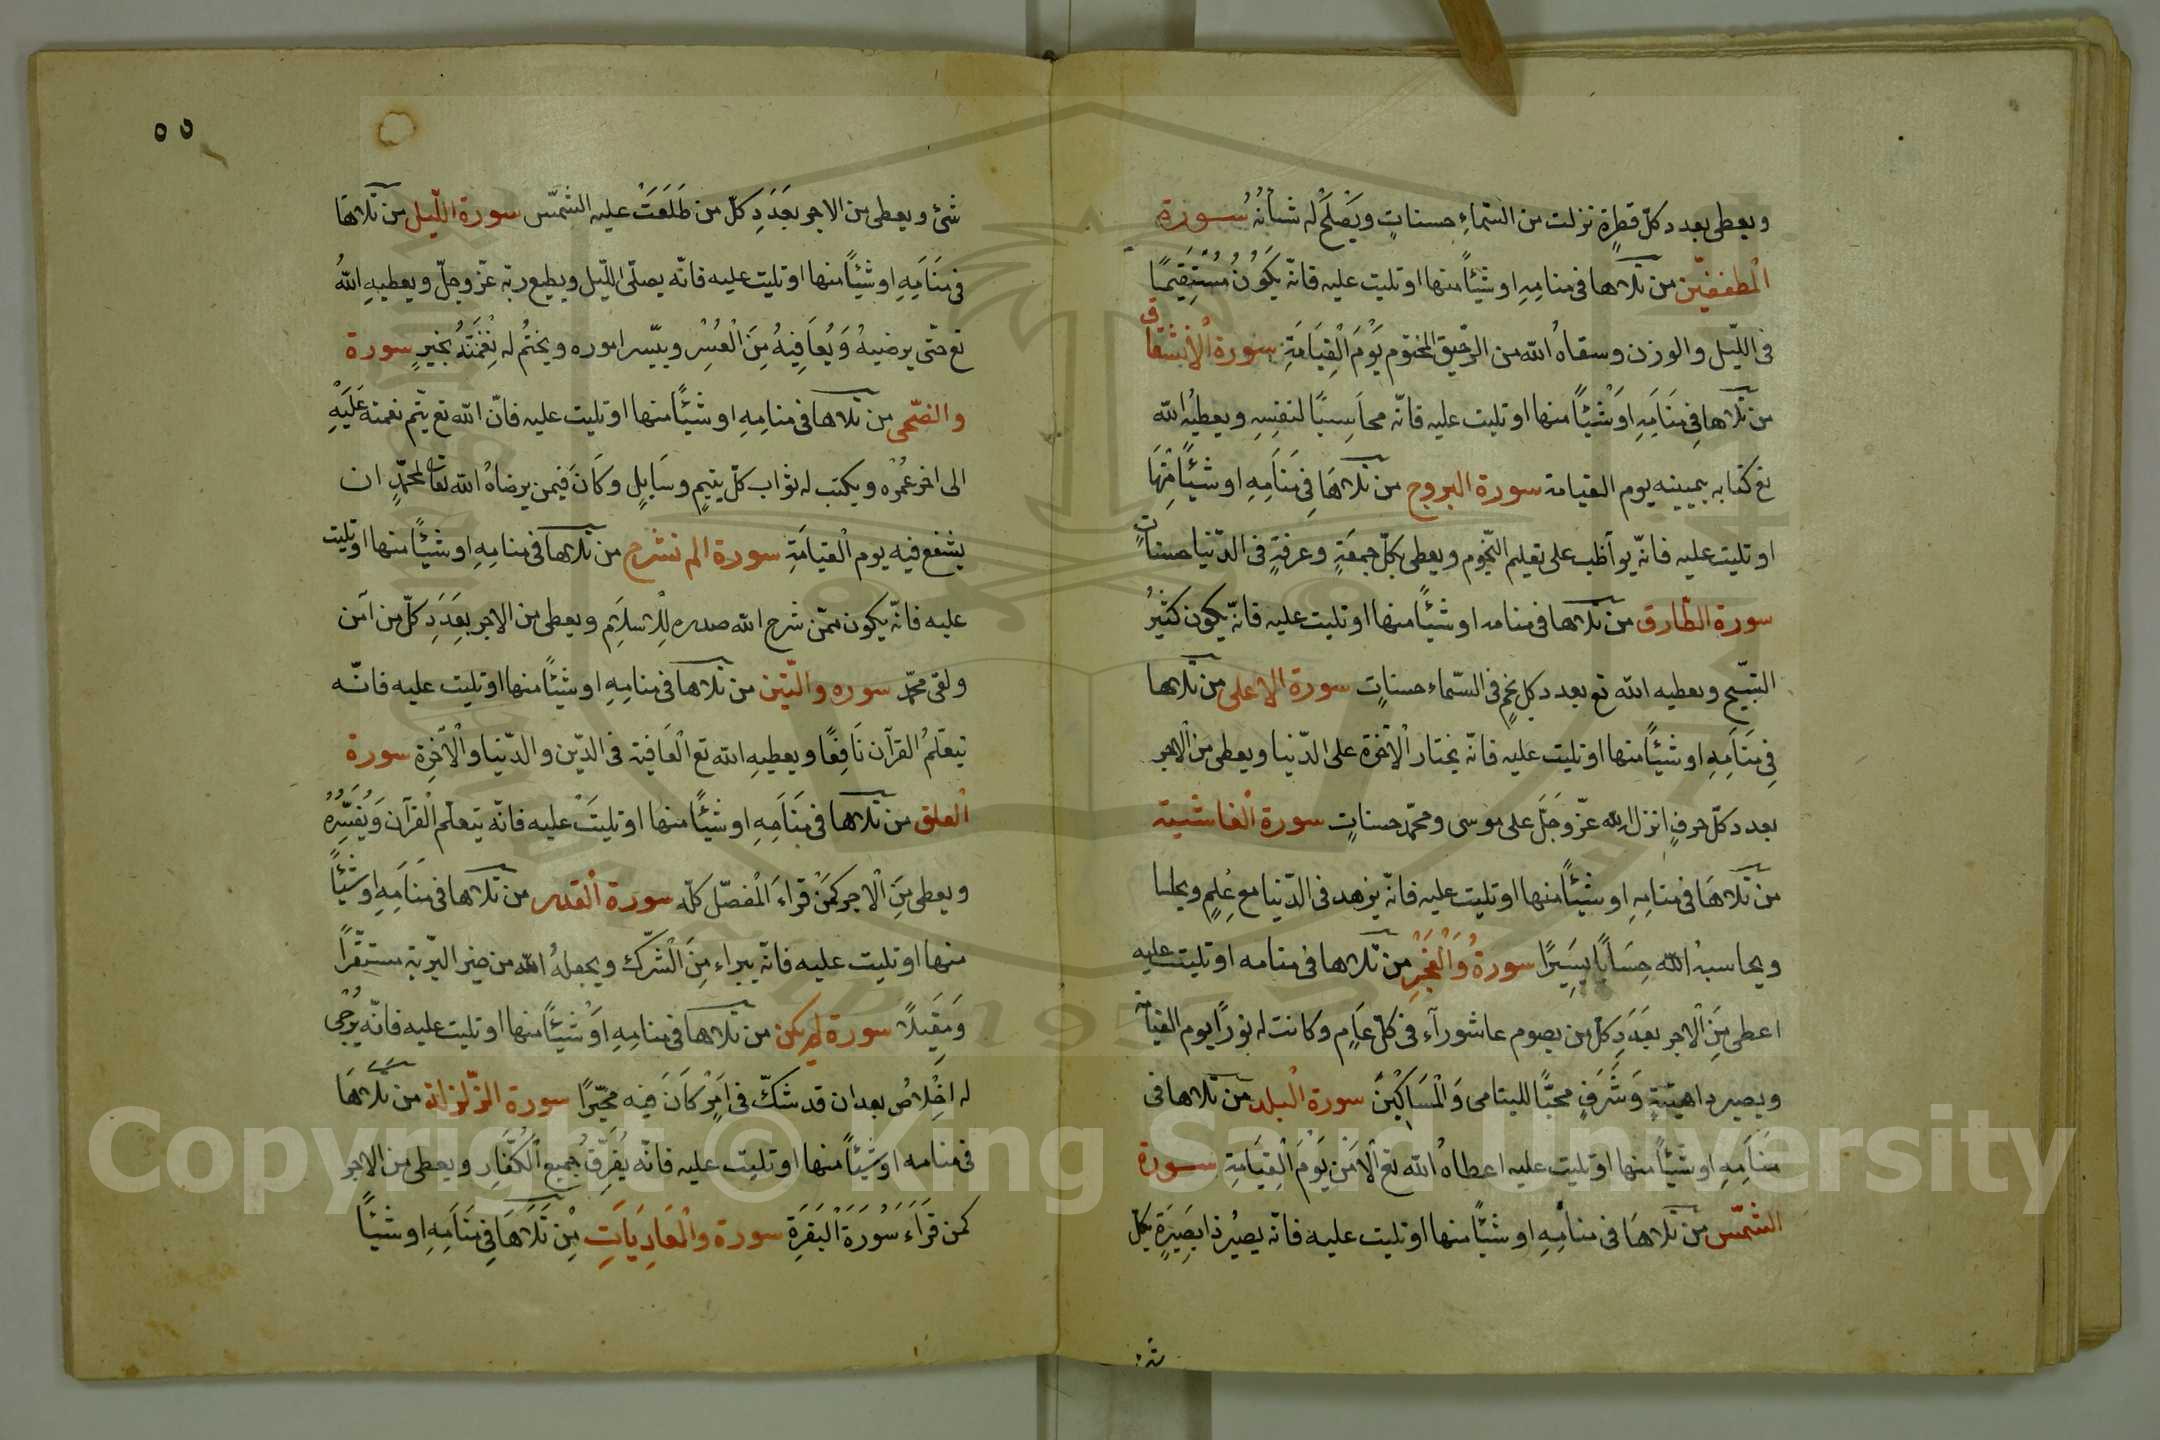 ويعطى بعدد كلّ قطرةٍ نزلت من السّماءِ حسناتٍ ويَصْلَحُ له شانُهُ سُورة
المطففّين من تلاها فى منامِهِ او شيئاً منها او تليت عليه فانّه يَكُونُ مُسْتَقِيمًا
فى اللّيل والوزن وسقاهُ الله من الرّحيق المختوم يَوْمَ الْقِيَامَةِ سورة الْاِنشقاق
من تلاها فِى مَنَامِهِ اَوْ شَيْئاً منها او تليت عليه فانّه محاسِبًا لنفسِهِ ويعطيهُ الله
تع كتابه بيمينه يوم القيامة سورة البروج من تلاهَا فِى مَنَامِهِ او شيئاً مِنْهَا
او تليت عليه فانّه يواظب على تعليم النّجوم ويعطى بكلّ جمعةٍ وعرفةٍ فى الدّنيا حسناتٍ
سورة الطّارق من تلاها فى منامه او شيئاً منها او تليت عليه فانّه يكون كثيرُ
التسبّيح ويعطيه الله تع بعدد كل نجمٍ فى السّماء حسناتٍ سورة الاعلى من تلاها
فِى مَنَامِهِ او شيئاً منها او تليت عليه فانّه يختار الْاٰخرة على الدّنيا ويعطى من الْاجر
بعدد كلّ حرفٍ انزل الله عزّ وجَلّ على موسى ومحمّد حسناتٍ سورة الْغاشية
من تلاهَا فى منامِهِ او شيئاً منها او تليت عليه فانّه يزهد فى الدّنيا مع عِلمٍ ويحلما
ويحاسبهُ الله حِسَابًا يَسِيرًا سورةُ وَالْفَجْرِ من تلاها فى منامه او تليت عليه
اعطى مِنَ الْاجر بعَدَدِ كلّ من يصوم عاشورآء فى كلّ عَامٍ وكانت له نورًا يوم القيامة
ويصير ذاهيبَةٍ وَشَرَفٍ محبًّا لليتامى وَالْمَسَاكِيْنَ سورة الْبلد من تلاها فى
مَنَامِهِ او شيئاً منها او تليت عليه اعطاهُ الله تع الْاَمَنْ يَوْمَ الْقِيَامَةِ سورة
الشمّس من تلاهَا فى منامِهِ او شيئاً منها او تليت عليه فانّه يصيُر ذا بَصِيرَةٍ بكلّ
٥٥
شئ ويعطى من الاجر بعَدَدِ كلّ من طَلَعَتْ عليه الشمّس سورة اللّيل من تلاها
فى مَنَامِهِ او شيئاً منها او تليت عليه فانّه يصلّى اللّيل ويطيع ربّه عزّ وجلّ ويعطيهِ اللهُ
تع حتّى يرضيهُ وَيُعَافِيهُ مِنَ الْعُسْرِ وييّسر اموره ويختمُ له نِعْمَتَهُ بخيرٍ سورة
والضّحى من تلاها فى منامِهِ او شيئاً منها او تليت عليه فانّ الله تع يتّم نعمته عَلَيْهِ
الى اخر عُمْره ويكتب له ثواب كلّ يتيمٍ وسَايلٍ وكَانَ فيمن يرضاهُ الله تعا لمحمّدٍ ان
يشفع فيه يوم الْقيامَةِ سورة الم نشرح من تلاها فى منامِهِ او شيئاً منها او تليت
عليه فانّه يكون ممّن شرح الله صدره لِلْاسْلَامِ ويعطى من الاجر بِعَدَدِ كلّ من آمن
ولقى محمّد سوره والتّين من تلاها فى منامِهِ او شيئاً منها او تليت عليه فانّه
يتعلّمُ القرآن نَافِعًا ويعطيهِ الله تع الْعَافية فى الدّين والدّنيا والْآخِرَة سورة
الْعلق من تلاها فى مَنَامِهِ او شيئاً منها او تليَتْ عليه فانّه يتعلّم الْقرآن وَيُفَسِّرُهُ
ويعطى مِنَ الْاجر كَمَنْ قَرَاءَ الْمفصّل كلّه سورة الْقدر من تلاها فى مَنَامِهِ او شيئًا
منها او تليت عليه فانّه يبراء مِنَ الْشّرك ويجعلهُ الله من خير البّرية مستقّرًا
وَمَقِيلًا سورة لم يكن من تلاها فى منامِهِ اَوْ شيئاً منها او تليت عليه فانّه يُرْجى
له اخْلاصٌ بعد ان قد شكّ فى اَمْرٍ كَانَ فيه محيّرًا سورة الزّلزلة من تلاهَا
فى منامه او شيئاً منها او تليت عليه فانّه يُفَرِّقُ جميع الْكُفّارِ ويعطى من الاجر
كمن قَرَاءَ سُورَة الْبَقَرَةِ سورة والْعَادِيَاتِ مِنْ تَلَاهَا فِى مَنَامِهِ او شيئاً